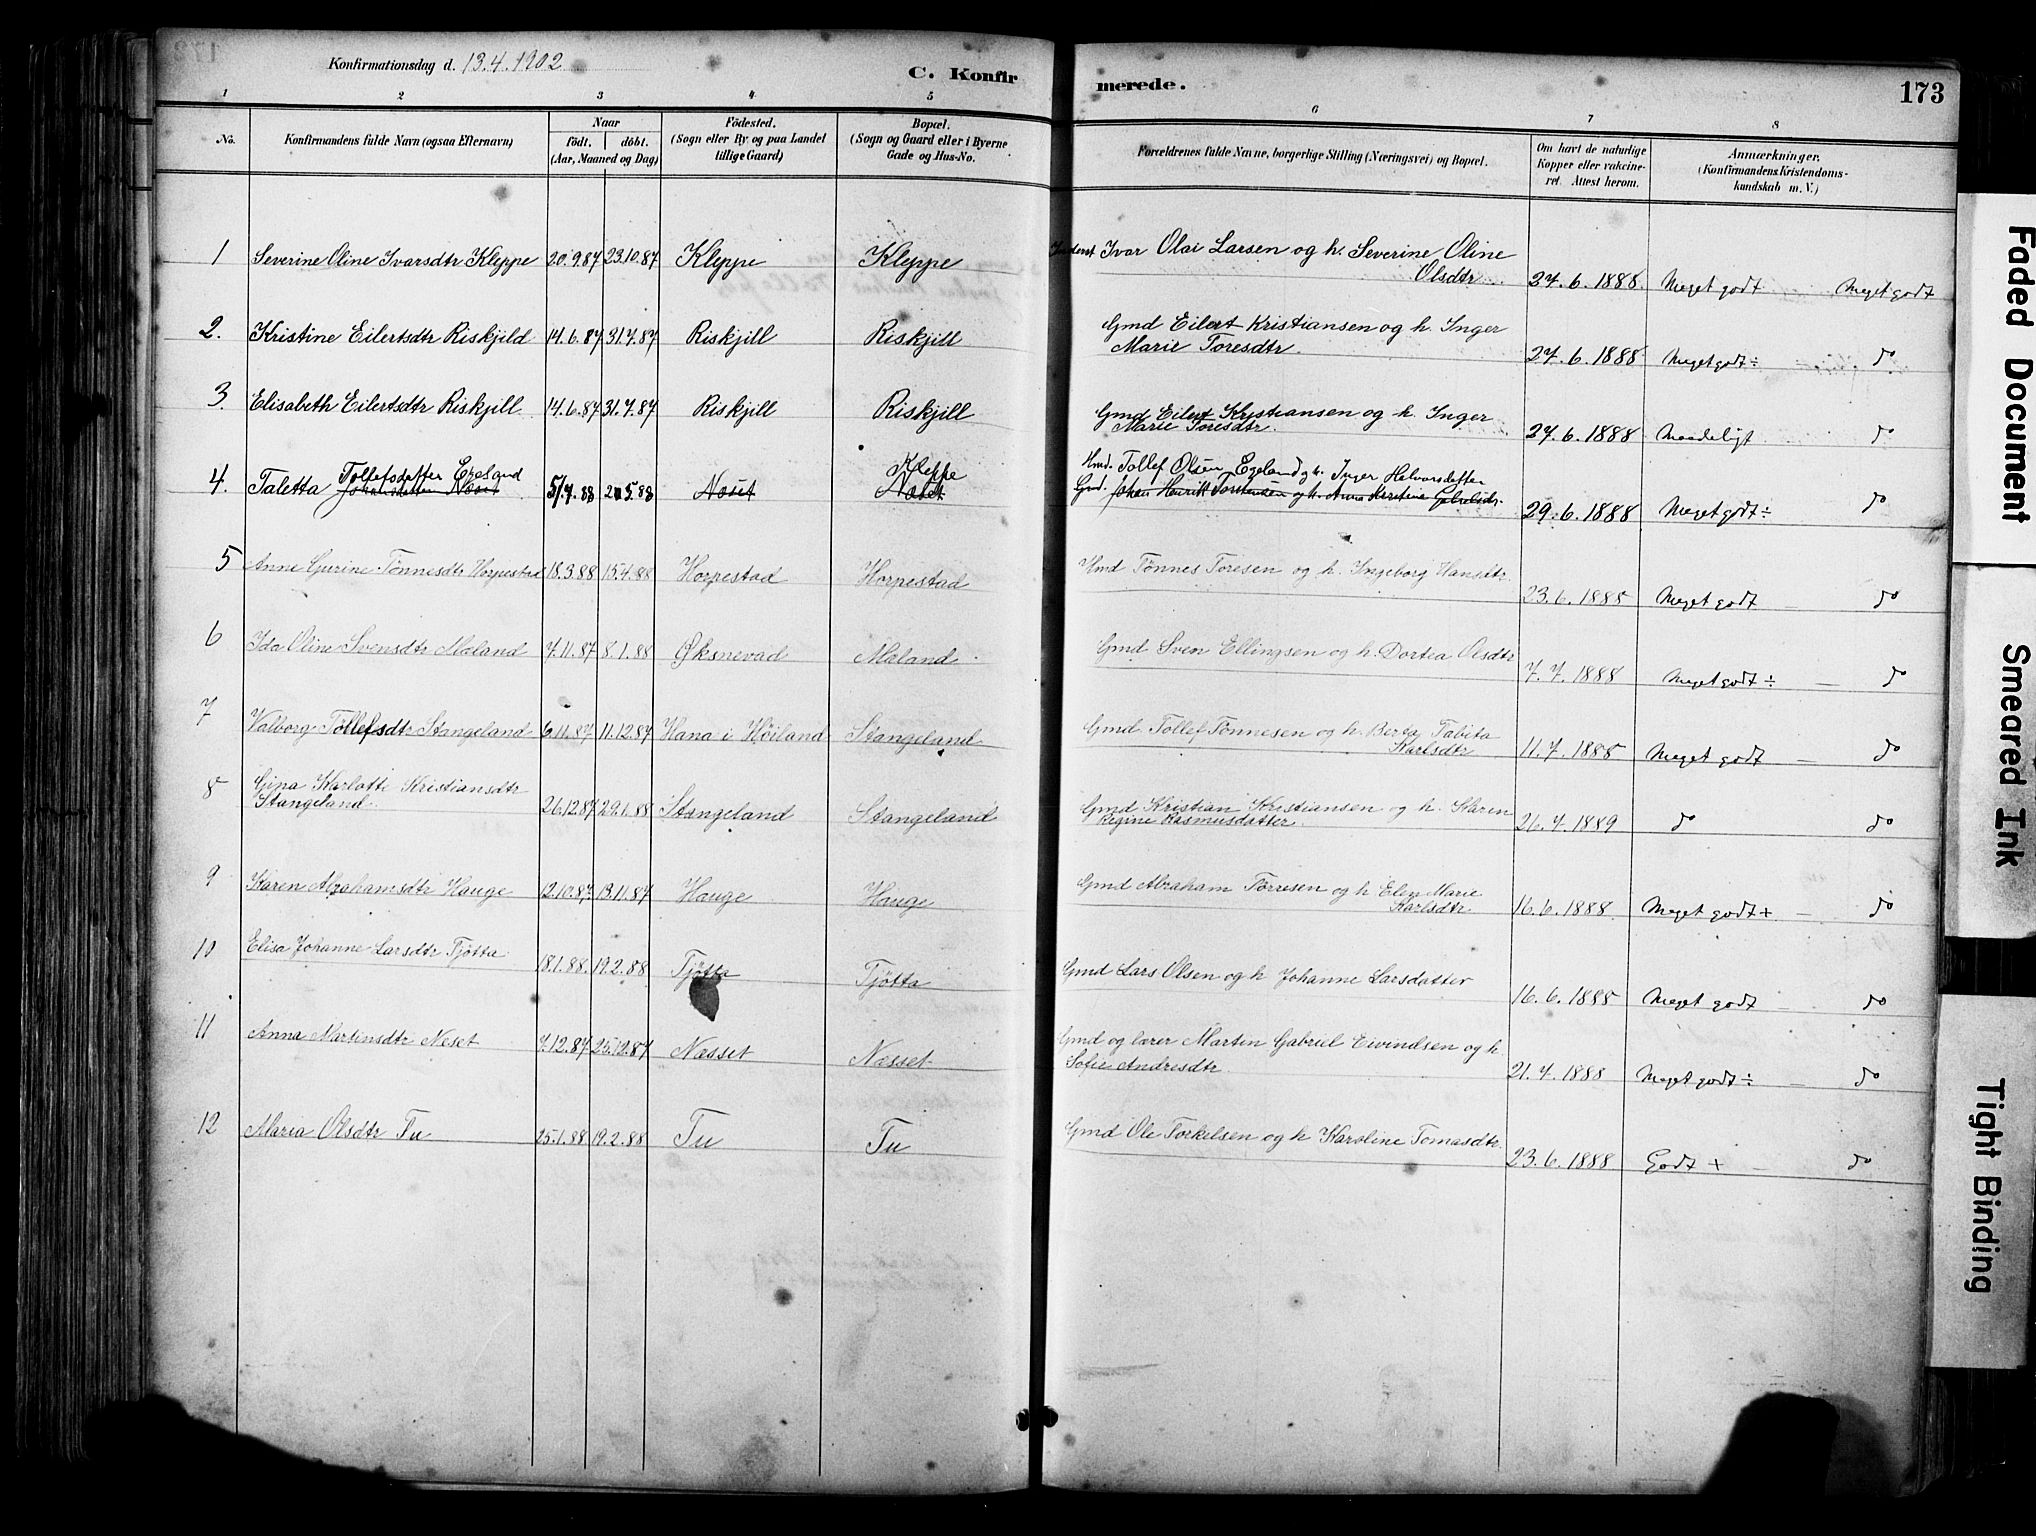 Konfirmationsdag d. 13.4.1902
C. Konfir
merede.
173
1 2 3 4 5 6 7 8
No.
Konfirmandens fulde Navn (ogsaa Efternavn)
Naar
födt. döbt.
(Aar, Maaned og Dag)
Födested.
(Sogn eller By og paa Landet
tillige Gaard)
Bopæl.
(Sogn og Gaard eller i Byerne
Gade og Hus-No.
Forældrenes fulde Navne, borgerlige Stilling (Næringsvei) og Bopæl.
Om havt de naturlige
Kopper eller vakcine-
ret. Attest herom.
Anmærkninger.
(Konfirmandens Kristendoms-
kundskab m. V.)
1 Severine Oline Ivarsdtr Kleppe 20.9.87 23.10.87 Kleppe Kleppe Inderst Ivar Olai Larsen og h. Severine Oline
Olsdtr 27.6.1888 Meget godt Meget godt
2. Kristine Eilertsdtr Riskjild 14.6.87 31.7.87 Riskjill Riskjill Gmd Eilert Kristiansen og h. Inger
Marie Toresdtr. 27.6.1888 Meget godt ÷ do
3. Elisabeth Eilertsdtr Riskjill 14.6.87 31.7.87 Riskjill Riskjill Gmd Eilert Kristiansen og h. Inger
Marie Toresdtr. 27.6.1888 Maadeligt do
Tollefsdatter Egeland Kleppe Hmd. Tollef Olsen Egeland og h. Inger Helvorsdatter
4. Taletta 5/4.88 2.5.88 Næset Næset Gmd. Johan Henrik Torstensen og h. Anna Kristine
29.6.1888 Meget godt ÷ do
5 Anne Gurine Tönnesdtr Horpestad 18.3.88 15.4.88 Horpestad Horpestad Hmd Tönnes Toresen og h. Ingeborg Hansdtr.
23.6.1888 Meget godt — do
6 Ida Oline Svensdtr Mæland 7.11.87 8.1.88 Øksnevad Mæland Gmd Sven Ellingsen og h. Dortea Olsdtr
7.7.1888 Meget godt ÷ — do
7 Valborg Tollefsdtr Stangeland 6.11.87 11.12.87 Hana i Höiland Stangeland Gmd Tollef Tönnesen og h. Berta Tabita
Karlsdtr 11.7.1888 Meget godt — do
8 Gina Karlotte Kristiansdtr
Stangeland 26.12.87 29.1.88 Stangeland Stangeland Gmd Kristian Kristiansen og h. Karen
Regine Rasmusdatter 26.7.1889 do do
9 Karen Abrahamsdtr Hauge 12.10.87 13.11.87 Hauge Hauge Gmd Abraham Torresen og h Elen Marie
Karlsdtr. 16.6.1888 Meget godt + — do
10 Elisa Johanne Larsdtr Tjötta 18.1.88. 19.2.88 Tjötta Tjötta Gmd Lars Olsen og h Johanne Larsdatter
16.6.1888 Meget godt — do
11 Anna Martinsdtr Neset 7.12.87 25.12.87 Næsset Næsset Gmd og lærer Marten Gabriel Eivindsen og h
Sofie Andresdtr 21.7.1888 Meget godt ÷ — do
12 Maria Olsdtr Tu 25.1.88 19.2.88 Tu Tu Gmd Ole Torkelsen og h Karoline Tomasdtr.
23.6.1888 Godt + — do
Faded Document
Smeared Ink
Tight Binding